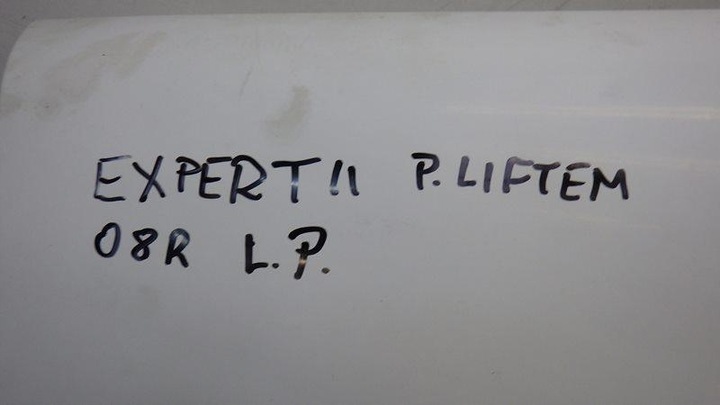 EXPERT II P.LIFTEM
08R L.P.